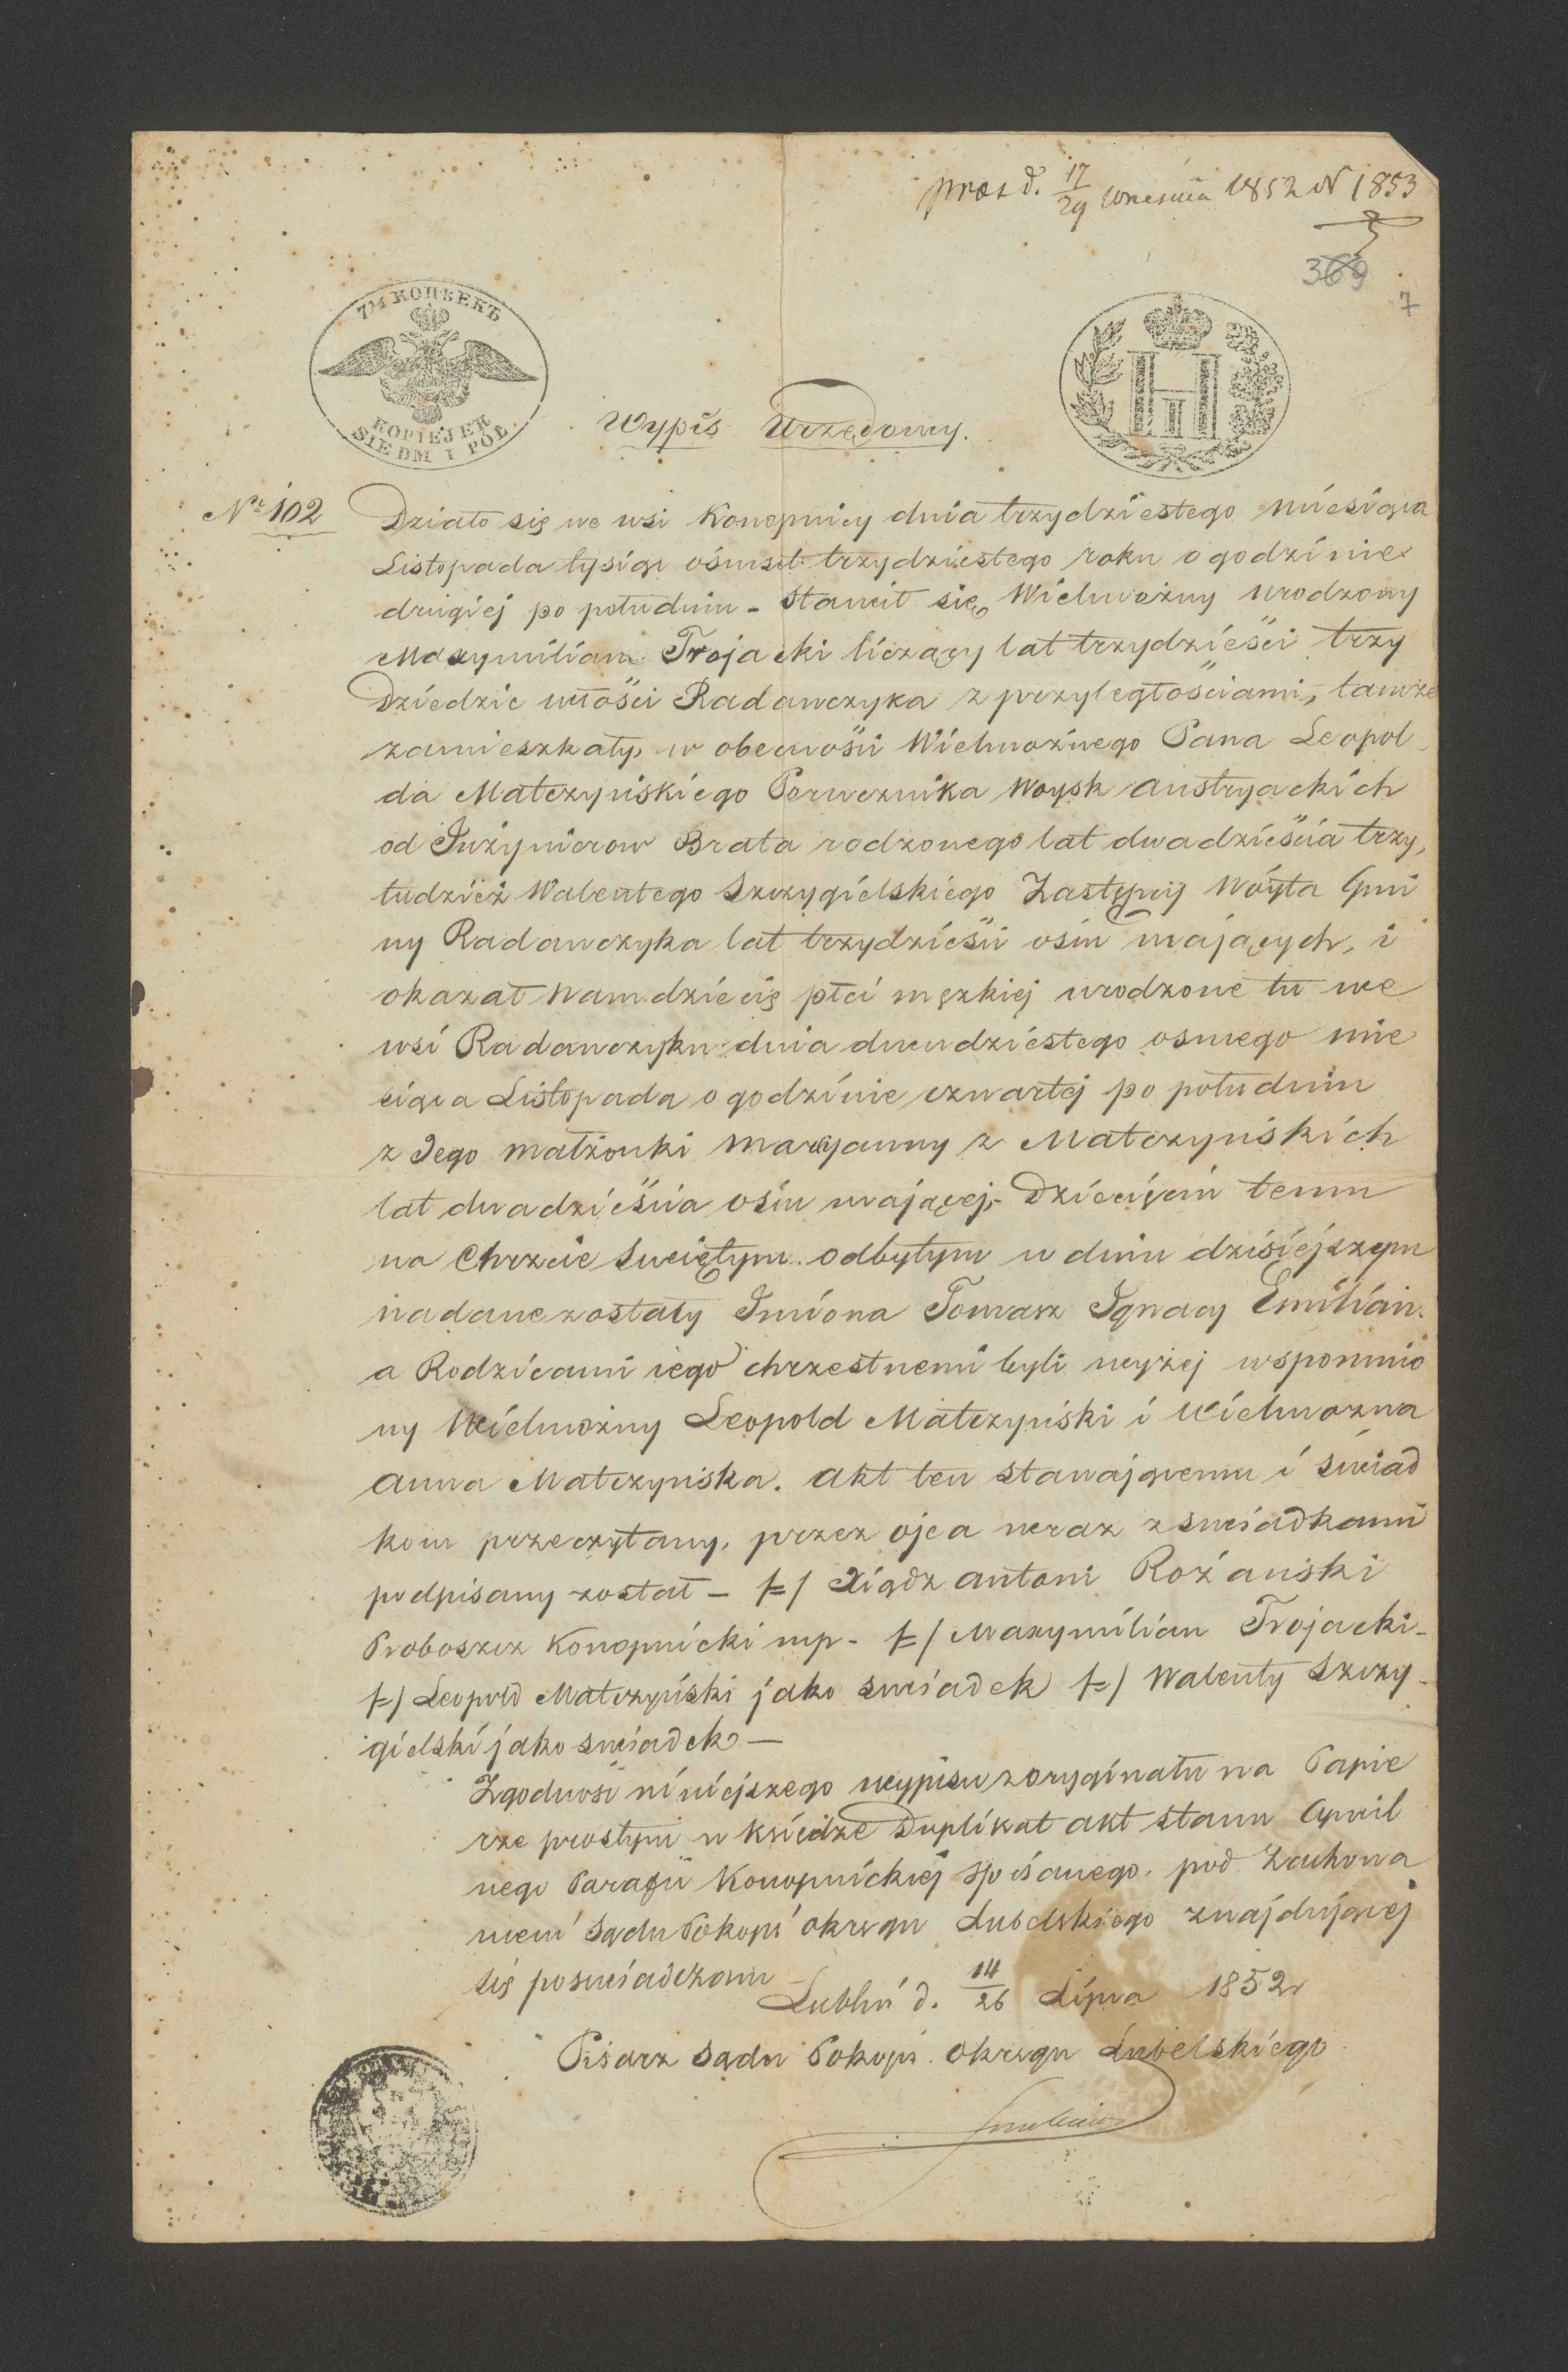 prez d. 17/29 Września 1852 N 1853
369
7
7½ КОПѢЕКЪ
KOPIEJEK
SIEDM I PÓŁ
Wypis Urzędowy.
Nr 102
Działo się we wsi Konopnicy dnia trzydziestego Miesiąca
Listopada tysiąc ośmset trzydziestego roku o godzinie
drugiej po południu - Stawił się Wielmożny urodzony
Maxymilian Trojacki liczący lat trzydzieści trzy
Dziedzic włości Radawczyka z przyległościami, tamże
zamieszkały, w obecności Wielmożnego Pana Leopol
da Matczyńskiego Porucznika Woysk Austryackich
od Inżynierow Brata rodzonego lat dwadzieścia trzy,
tudzież Walentego Szczygielskiego Zastępcy Wóyta Gmi
ny Radawczyka lat trzydzieści ośm mających, i
okazał Nam dziecię płci męzkiej urodzone tu we
wsi Radawczyku dnia dwudziestego osmego mie
siąca Listopada o godzinie czwartej po południu
z Jego małżonki Maryanny z Matczyńskich
lat dwadzieścia ośm mającej,- Dziecięciu temu
na Chrzcie Swiętym odbytym w dniu dzisiejszym
nadane zostały Imiona Tomasz Ignacy Emilian.
a Rodzicami iego chrzestnemi byli wyżej wspomnio
ny Wielmożny Leopold Matczyński i Wielmożna
Anna Matczyńska. Akt ten stawającemu i świad
kom przeczytany, przez ojca wraz z swiadkami
podpisany został - /=/ Xiądz Antoni Rożański
Proboszcz Konopnicki mp. /=/ Maxymilian Trojacki -
/=/ Leopold Matczyński jako swiadek /=/ Walenty Szczy-
gielski jako swiadek —
Zgodność niniejszego wypisu z oryginału na Papie
rze prostym w księdze Duplikat akt stanu Cywil
nego Parafii Konopnickiej spisanego, pod Zachowa
niem Sądu Pokoju Okręgu Lubelskiego znajdującej
się poswiadczam
Lublin d. 14/26 Lipca 1852 r
Pisarz Sądu Pokoju Okręgu Lubelskiego